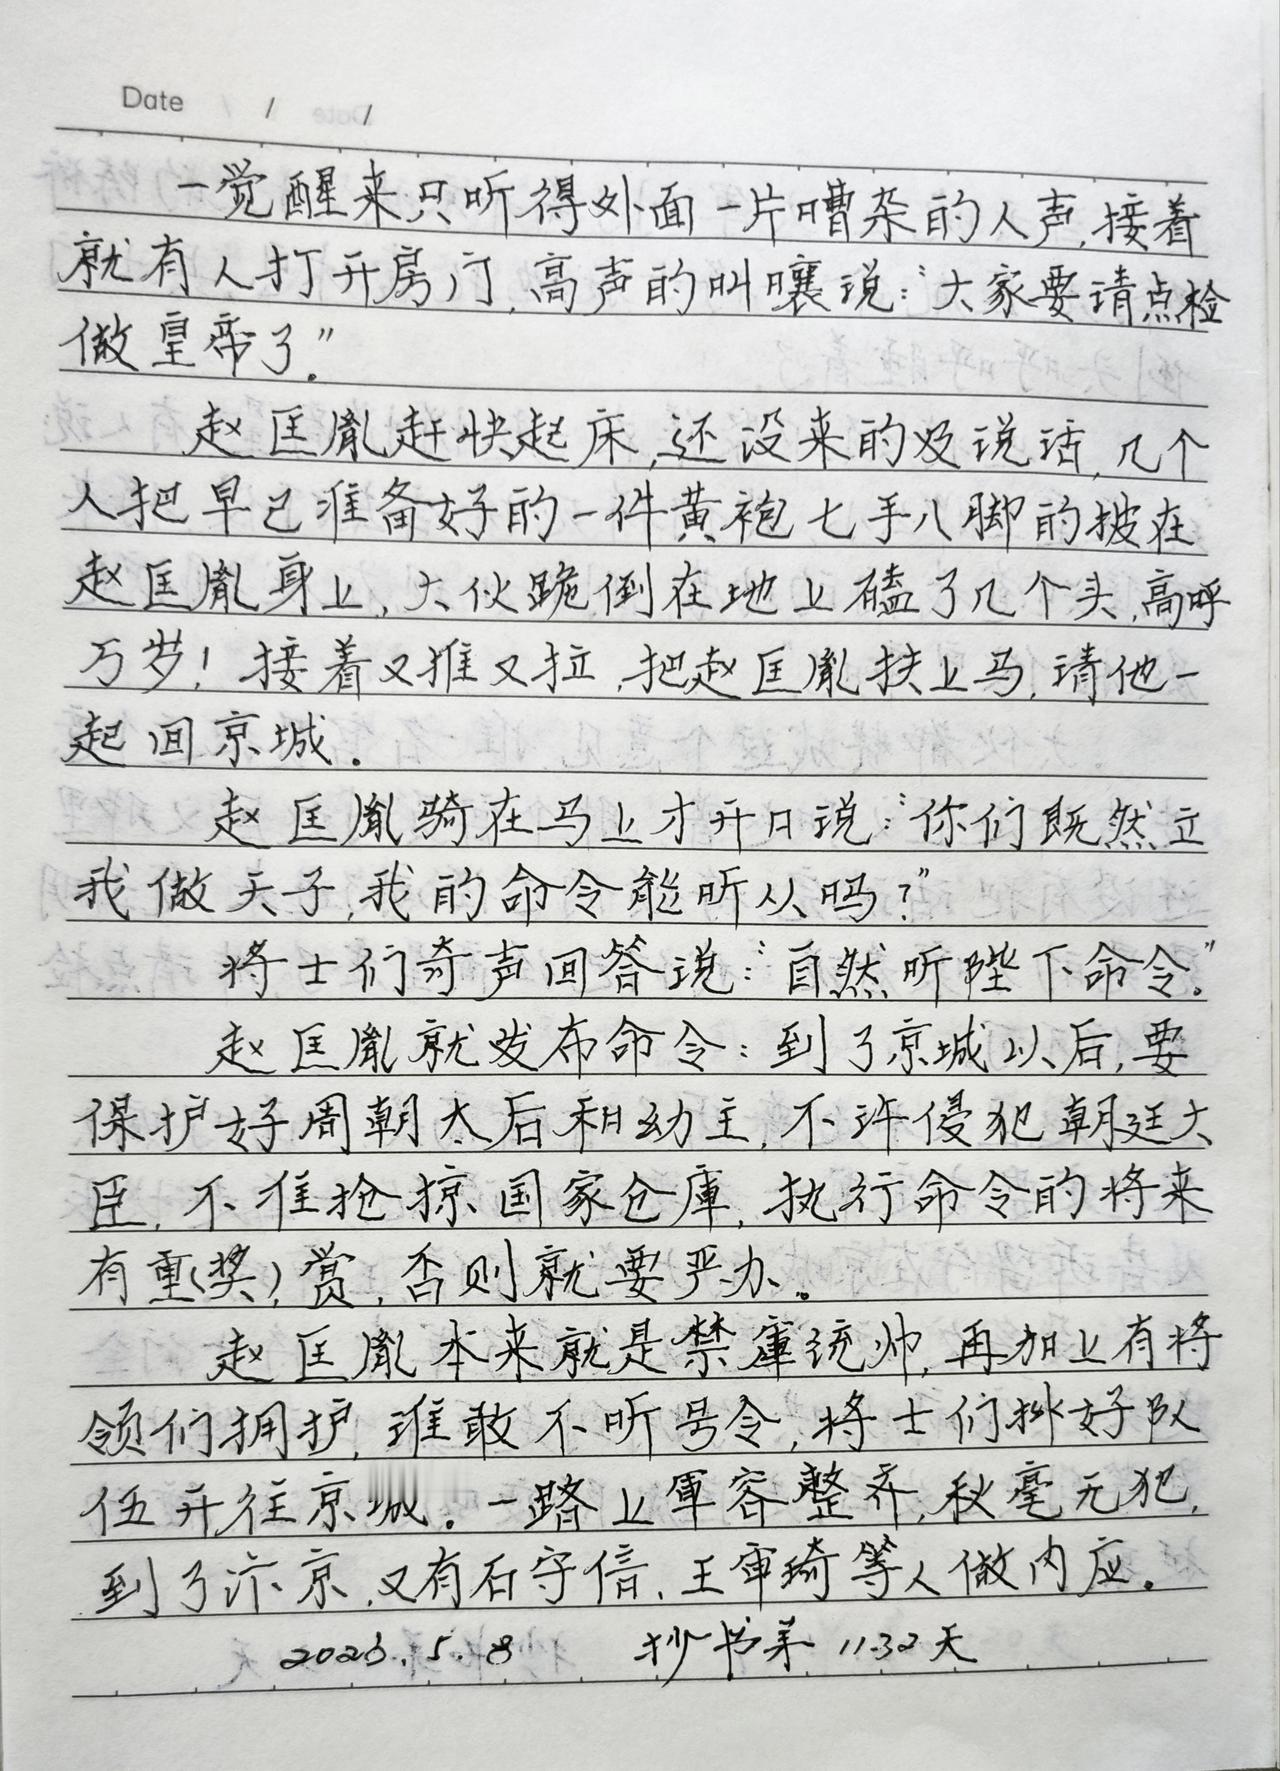 Date / /
一觉醒来只听得外面一片嘈杂的人声,接着
就有人打开房门,高声的叫嚷说:“大家要请点检
做皇帝了。”
赵匡胤赶快起床,还没来的及说话,几个
人把早已准备好的一件黄袍七手八脚的披在
赵匡胤身上,大伙跪倒在地上磕了几个头,高呼
万岁!接着又推又拉,把赵匡胤扶上马,请他一
起回京城。
赵匡胤骑在马上才开口说:“你们既然立
我做天子,我的命令能听从吗?”
将士们奇声回答说:“自然听陛下命令。”
赵匡胤就发布命令:到了京城以后,要
保护好周朝太后和幼主,不许侵犯朝廷大
臣,不准抢掠国家仓庫,执行命令的将来
有重(奖)赏,否则就要严办。
赵匡胤本来就是禁軍统帅,再加上有将
领们拥护,谁敢不听号令,将士们排好队
伍开往京城。一路上軍容整齐,秋毫无犯,
到了汴京,又有石守信、王审琦等人做内应。
2023.5.8 抄书第1132天